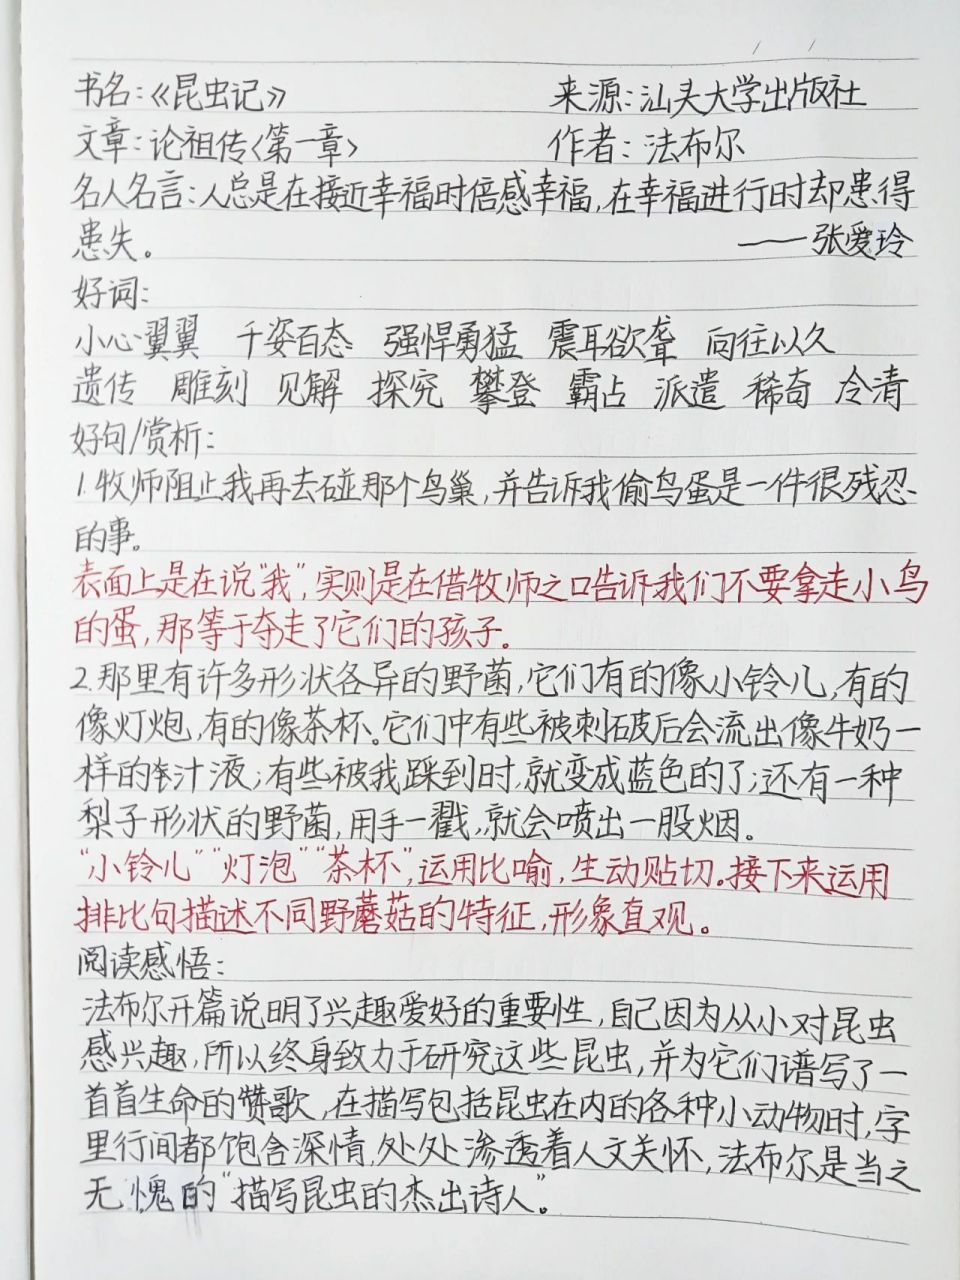 书名：《昆虫记》 来源：汕头大学出版社
文章：论祖传〈第一章〉 作者：法布尔
名人名言：人总是在接近幸福时倍感幸福，在幸福进行时却患得
患失。 ——张爱玲
好词：
小心翼翼 千姿百态 强悍勇猛 震耳欲聋 向往以久
遗传 雕刻 见解 探究 攀登 霸占 派遣 稀奇 冷清
好句/赏析：
1.牧师阻止我再去碰那个鸟巢，并告诉我偷鸟蛋是一件很残忍
的事。
表面上是在说“我”，实则是在借牧师之口告诉我们不要拿走小鸟
的蛋，那等于夺走了它们的孩子。
2.那里有许多形状各异的野菌，它们有的像小铃儿，有的
像灯炮，有的像茶杯。它们中有些被刺破后会流出像牛奶一
样的汁液；有些被我踩到时，就变成蓝色的了；还有一种
梨子形状的野菌，用手一戳，就会喷出一股烟。
“小铃儿”“灯泡”“茶杯”，运用比喻，生动贴切。接下来运用
排比句描述不同野蘑菇的特征，形象直观。
阅读感悟：
法布尔开篇说明了兴趣爱好的重要性，自己因为从小对昆虫
感兴趣，所以终身致力于研究这些昆虫，并为它们谱写了一
首首生命的赞歌，在描写包括昆虫在内的各种小动物时，字
里行间都饱含深情，处处渗透着人文关怀，法布尔是当之
无愧的“描写昆虫的杰出诗人”。